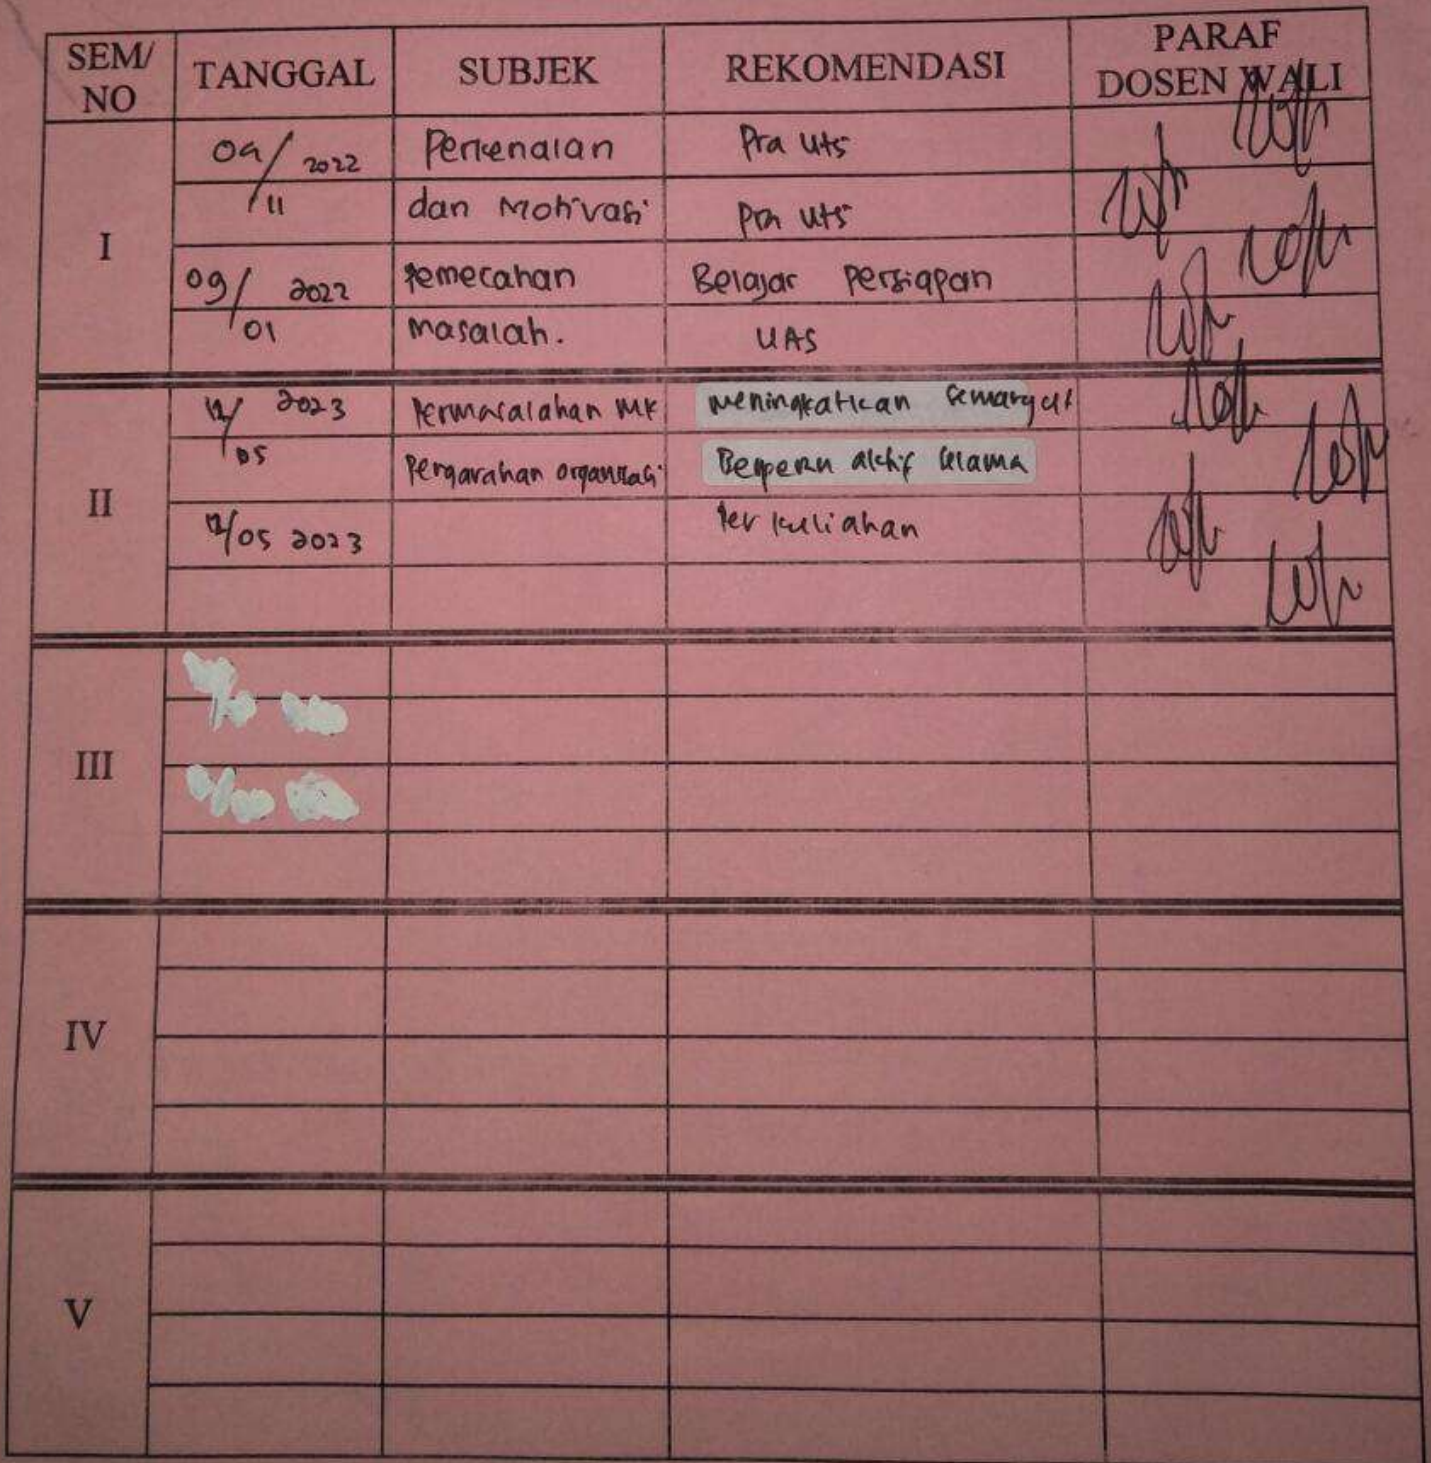 SEM/ NO TANGGAL SUBJEK REKOMENDASI PARAF DOSEN WALI
I
09/ 2022 Perkenalan Pra Uts
11 dan Motivasi Pra Uts
09/ 2022 Pemecahan Belajar Persiapan
01 masalah. UAS
II
12/ 2023 Permasalahan MK Meningkatkan Semangat
05 Pengarahan organisasi Berperan aktif selama
12/05 2023 Perkuliahan
III
IV
V